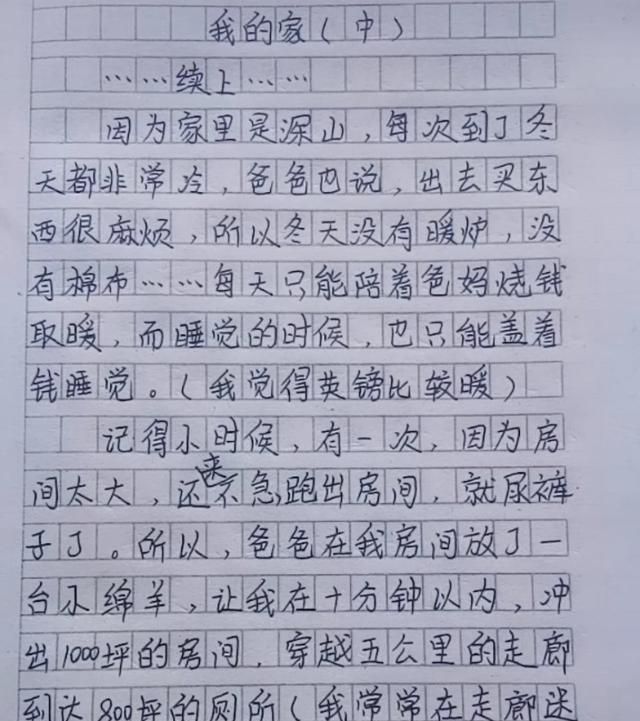 我的家（中）
……续上……
因为家里是深山，每次到了冬
天都非常冷，爸爸也说，出去买东
西很麻烦，所以冬天没有暖炉，没
有棉布……每天只能陪着爸妈烧钱
取暖，而睡觉的时候，也只能盖着
钱睡觉。（我觉得英镑比较暖）
记得小时候，有一次，因为房
间太大，还来不急跑出房间，就尿裤
子了。所以，爸爸在我房间放了一
台小绵羊，让我在十分钟以内，冲
出1000坪的房间，穿越五公里的走廊
到达800坪的厕所（我常常在走廊迷